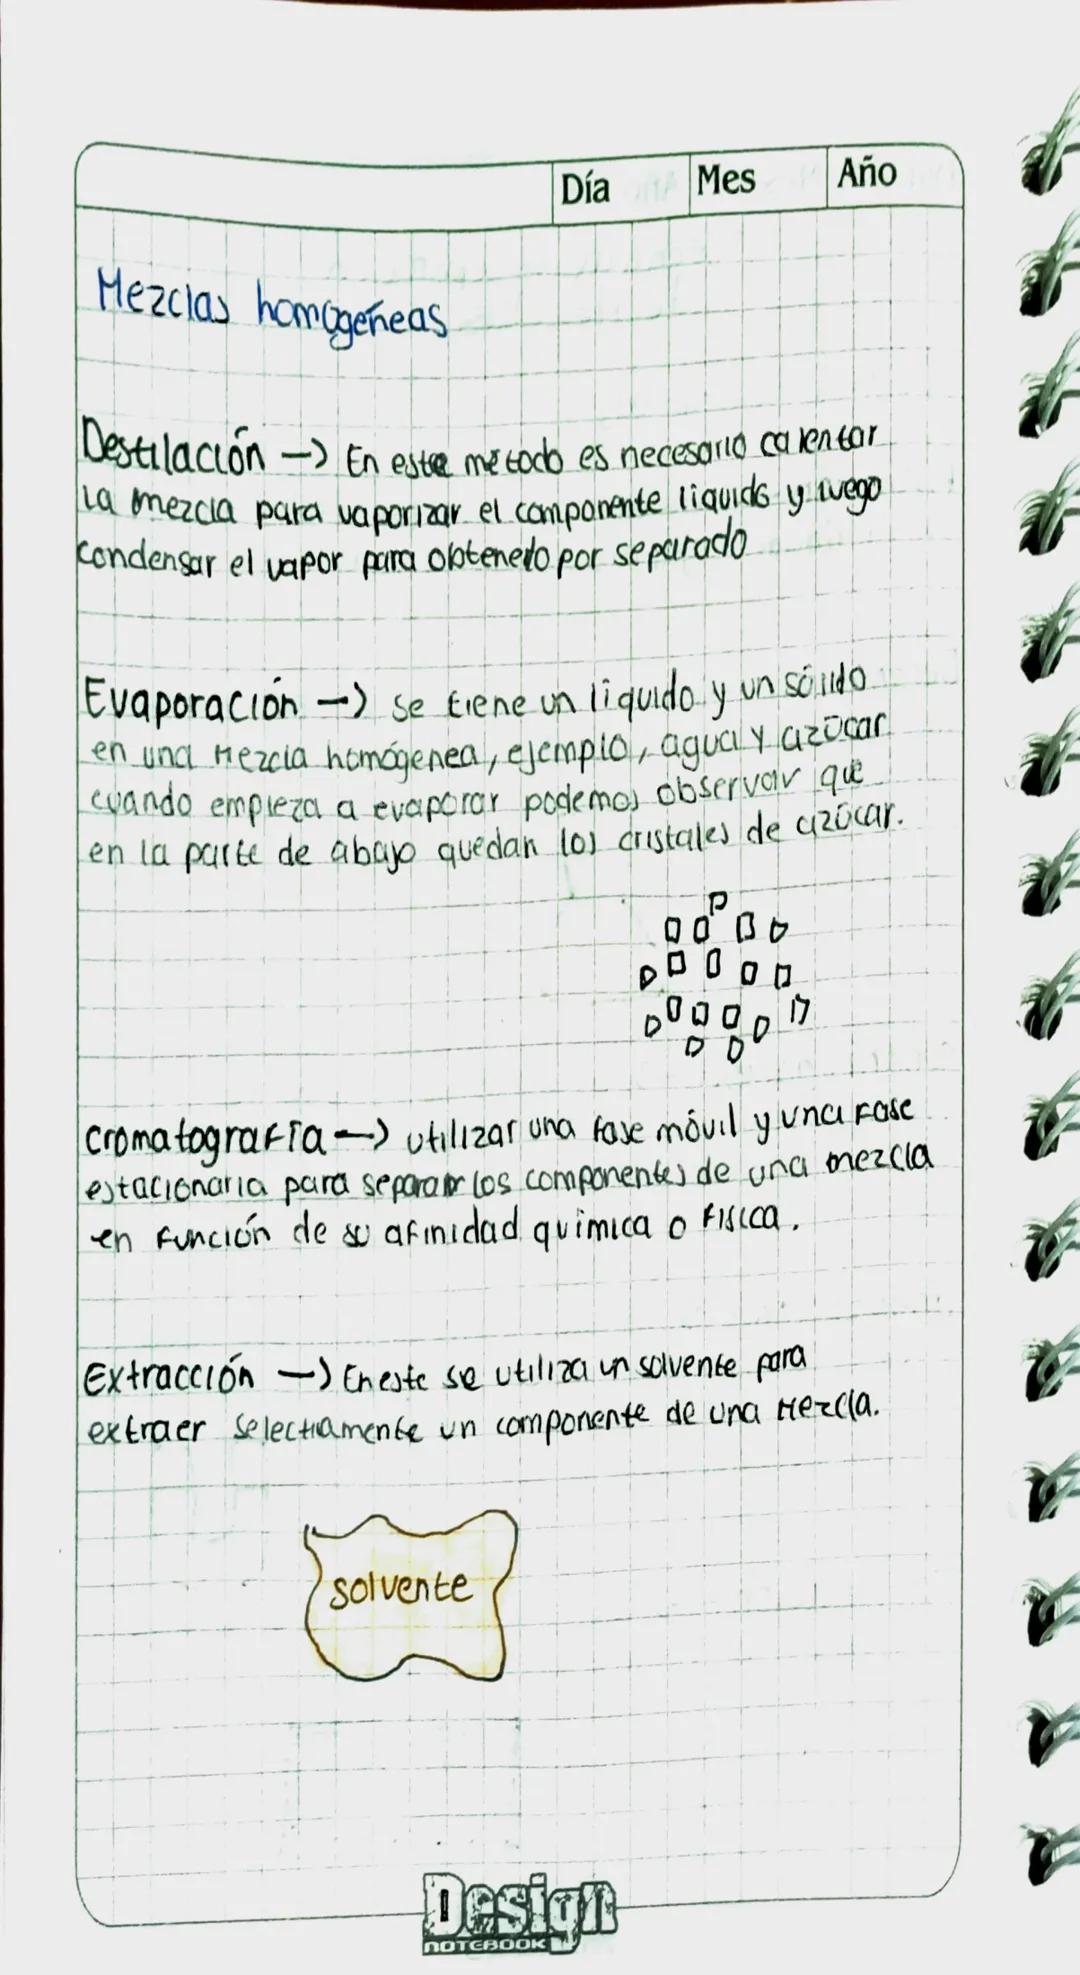 Día Mes Año
Mezclas homogeneas
Destilación -> En este método es necesario calentar
la mezcla para vaporizar el componente liquido y luego
condensar el vapor para obtenerlo por separado
Evaporación -> se tiene un liquido y un sólido
en una Mezcla homógenea, ejemplo, agua y azúcar
cuando empieza a evaporar podemos observar que
en la parte de abajo quedan los cristales de azúcar.
cromatografía -> utilizar una fase móvil y una fase
estacionaria para separar los componentes de una mezcla
en función de su afinidad química o física.
Extracción -> En este se utiliza un solvente para
extraer selectiamente un componente de una Mezcla.
solvente
Design
NOTEBOOK